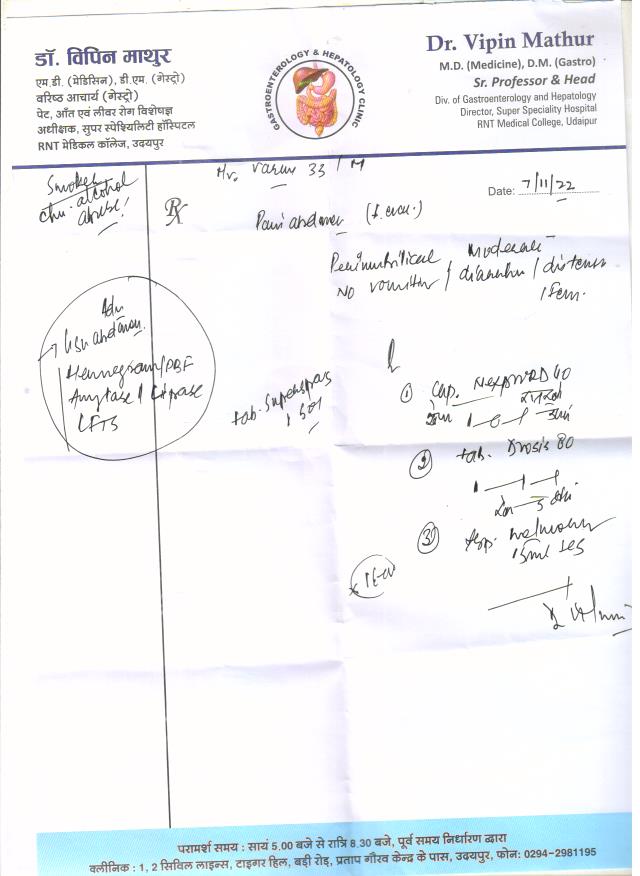 डॉ. विपिन माथुर
एम.डी. (मेडिसिन), डी.एम. (गेस्ट्रो)
वरिष्ठ आचार्य (गेस्ट्रो)
पेट, आँत एवं लीवर रोग विशेषज्ञ
अधीक्षक, सुपर स्पेश्यिलिटी हॉस्पिटल
RNT मेडिकल कॉलेज, उदयपुर
GASTROENTEROLOGY & HEPATOLOGY CLINIC
Dr. Vipin Mathur
M.D. (Medicine), D.M. (Gastro)
Sr. Professor & Head
Div. of Gastroenterology and Hepatology
Director, Super Speciality Hospital
RNT Medical College, Udaipur
Mr. Varun 33 / M
Date: 7/11/22
Smoker
chr. alcohol
abuse!
Rx
Pain abdomen
Periumbilical Moderate
No vomiting / diarrhea /
Adv
USG abdomen
Hemogram/PBF
Amylase / Lipase
LFTS
① Cap. Nexpro RD 40
1-0-1
tab.
② tab. Drosis 80
1-1-1
③ Syp.
15ml
परामर्श समय : सायं 5.00 बजे से रात्रि 8.30 बजे, पूर्व समय निर्धारण द्वारा
क्लीनिक : 1, 2 सिविल लाइन्स, टाइगर हिल, बड़ी रोड़, प्रताप गौरव केन्द्र के पास, उदयपुर, फोन: 0294-2981195